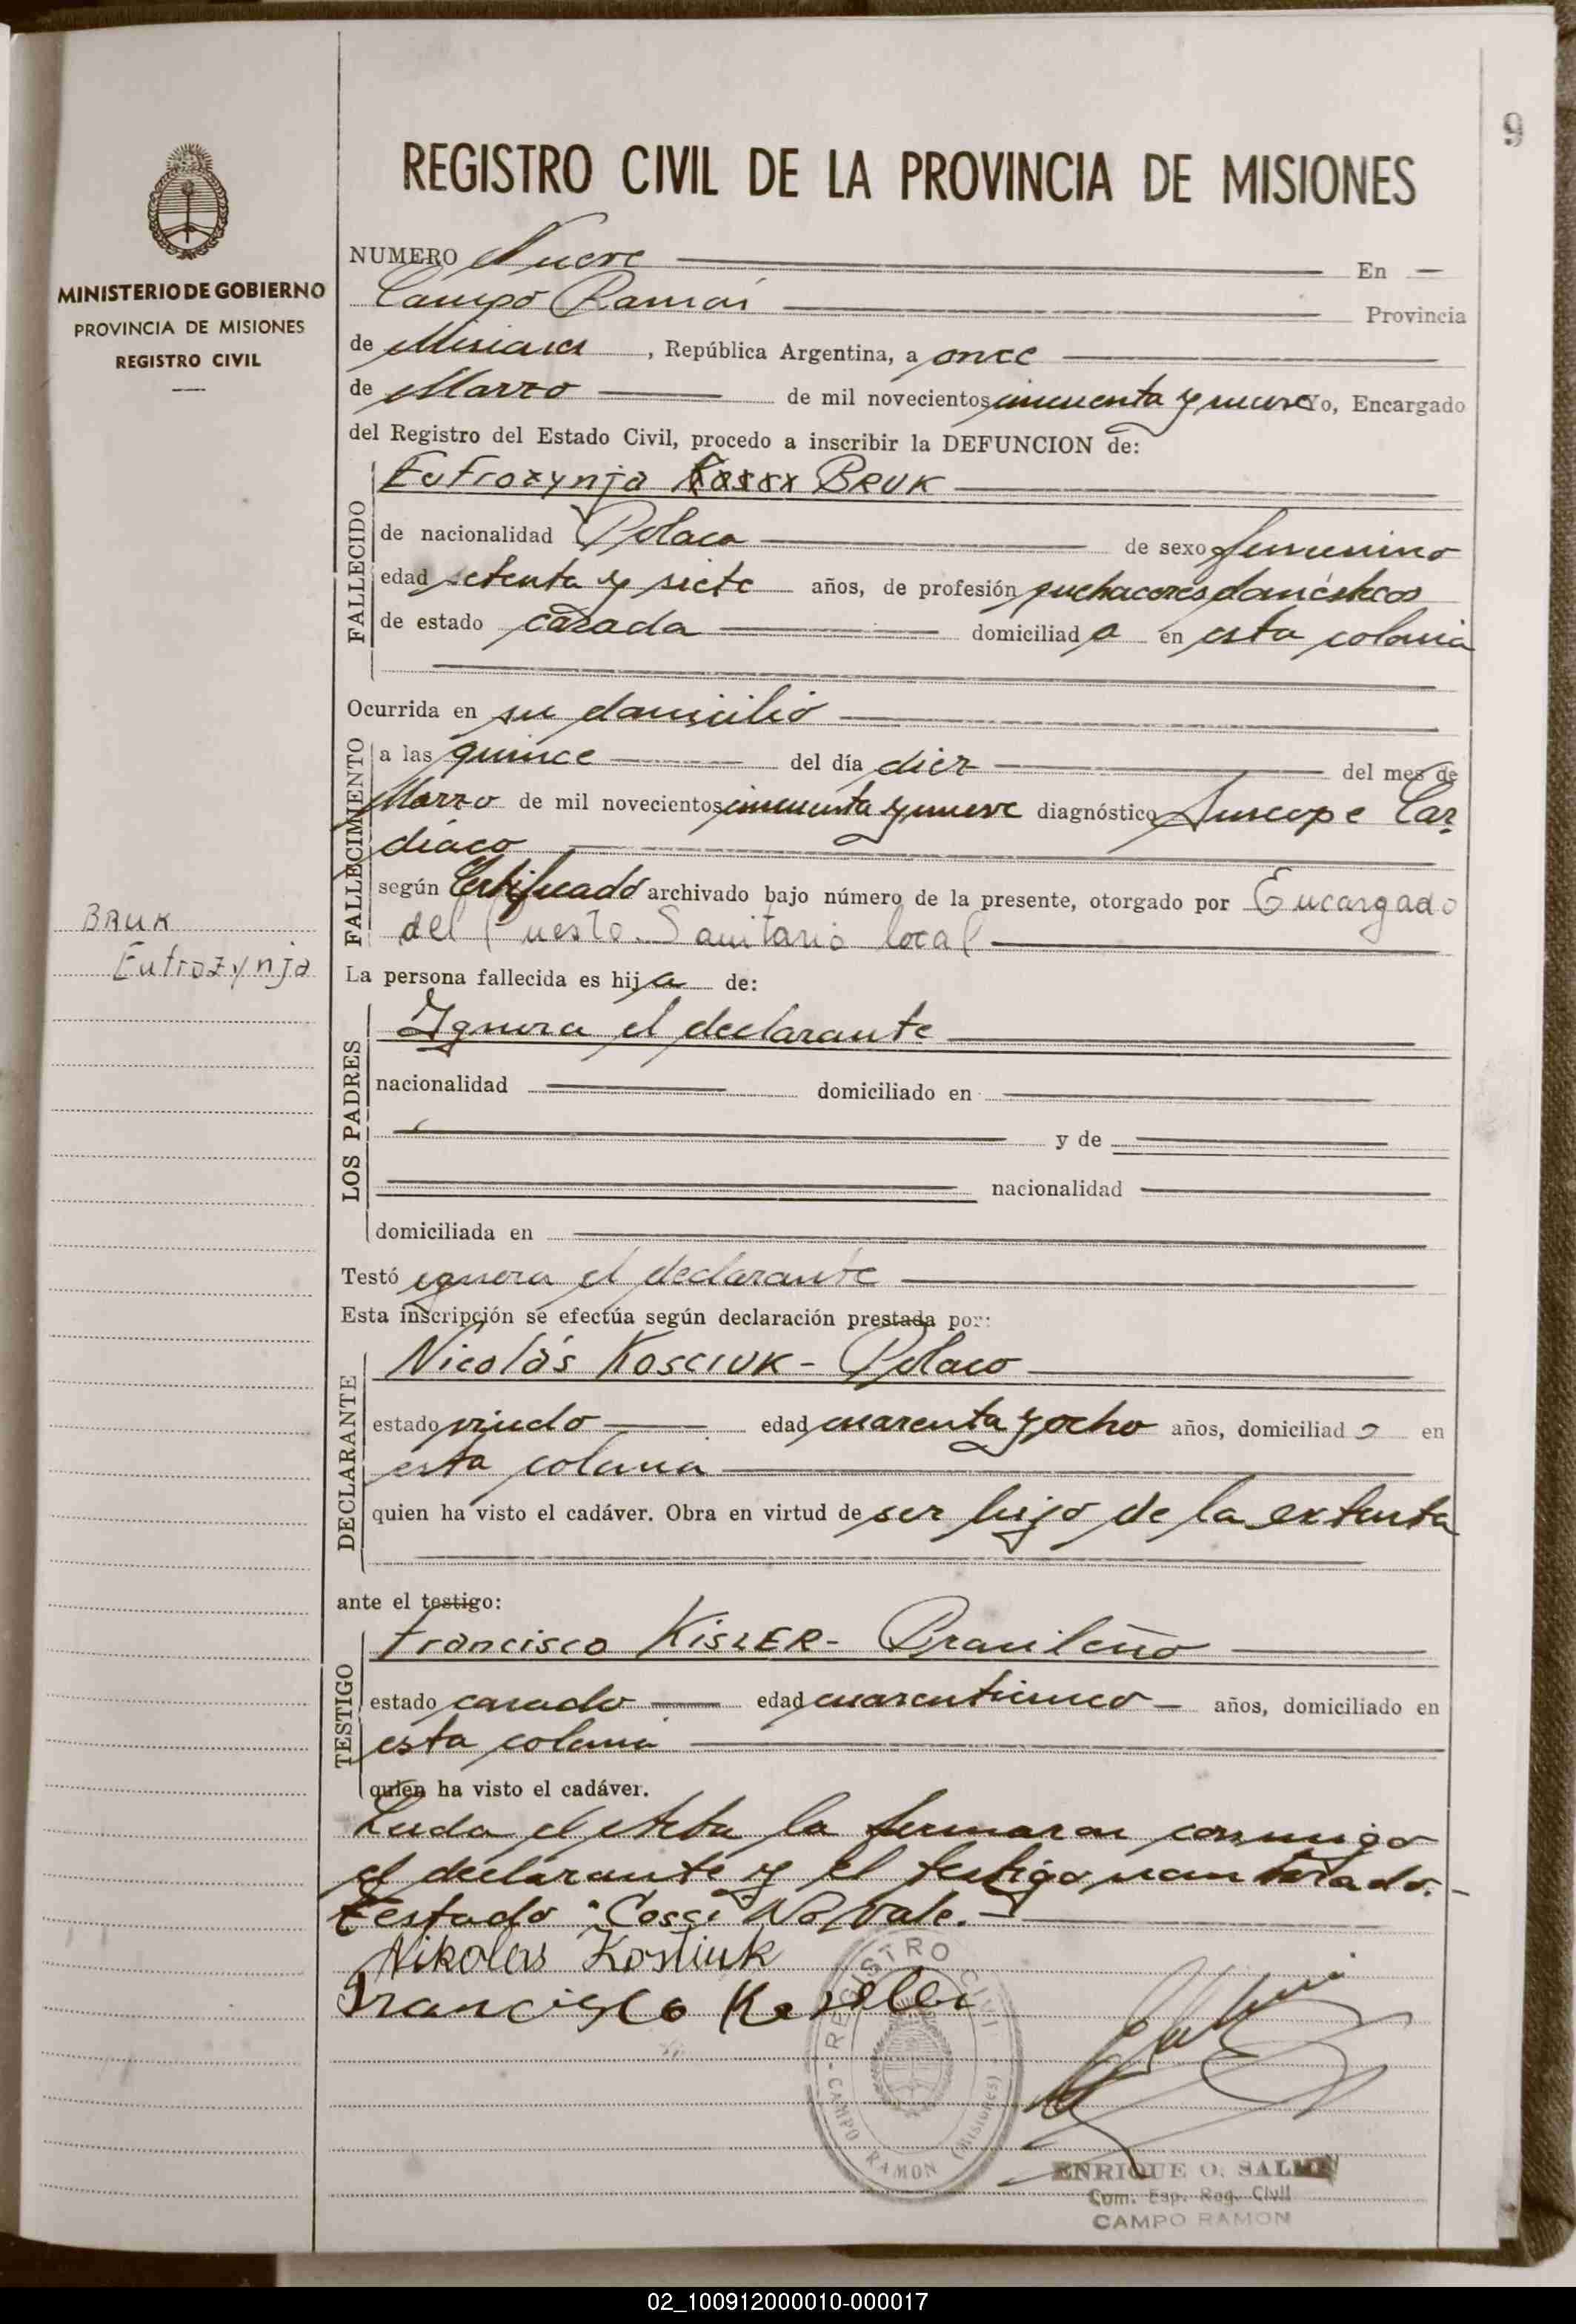 9
REGISTRO CIVIL DE LA PROVINCIA DE MISIONES
MINISTERIO DE GOBIERNO
PROVINCIA DE MISIONES
REGISTRO CIVIL
NUMERO Nueve En
Campo Ramón Provincia
de Misiones, República Argentina, a once
de Marzo de mil novecientos cincuenta y nueve Yo, Encargado
del Registro del Estado Civil, procedo a inscribir la DEFUNCION de:
Eufrozynja BRUK
FALLECIDO
de nacionalidad Polaca de sexo femenino
edad setenta y siete años, de profesión quehaceres domésticos
de estado casada domiciliad a en esta colonia
Ocurrida en su domicilio
FALLECIMIENTO
a las quince del día diez del mes de
Marzo de mil novecientos cincuenta y nueve diagnóstico Sincope Car
diaco
según Certificado archivado bajo número de la presente, otorgado por Encargado
del Puesto Sanitario local
BRUK
Eufrozynja
La persona fallecida es hija de:
LOS PADRES
Ignora el declarante
nacionalidad domiciliado en
y de
nacionalidad
domiciliada en
Testó ignora el declarante
Esta inscripción se efectúa según declaración prestada por:
DECLARANTE
Nicolás KOSCIUK - Polaco
estado viudo edad cuarenta y ocho años, domiciliad o en
esta colonia
quien ha visto el cadáver. Obra en virtud de ser hijo de la extinta
ante el testigo:
TESTIGO
Francisco KISLER - Brasileño
estado casado edad cuarenticinco años, domiciliado en
esta colonia
quien ha visto el cadáver.
Leida el Acta la firmaron conmigo
el declarante y el testigo nombrado.-
Testado "Cosci" No Vale.-
Nikolas Kostiuk
Francisco
REGISTRO CIVIL
CAMPO RAMON (MISIONES)
ENRIQUE O.
Com. Esp. Reg. Civil
CAMPO RAMON
02_100912000010-000017